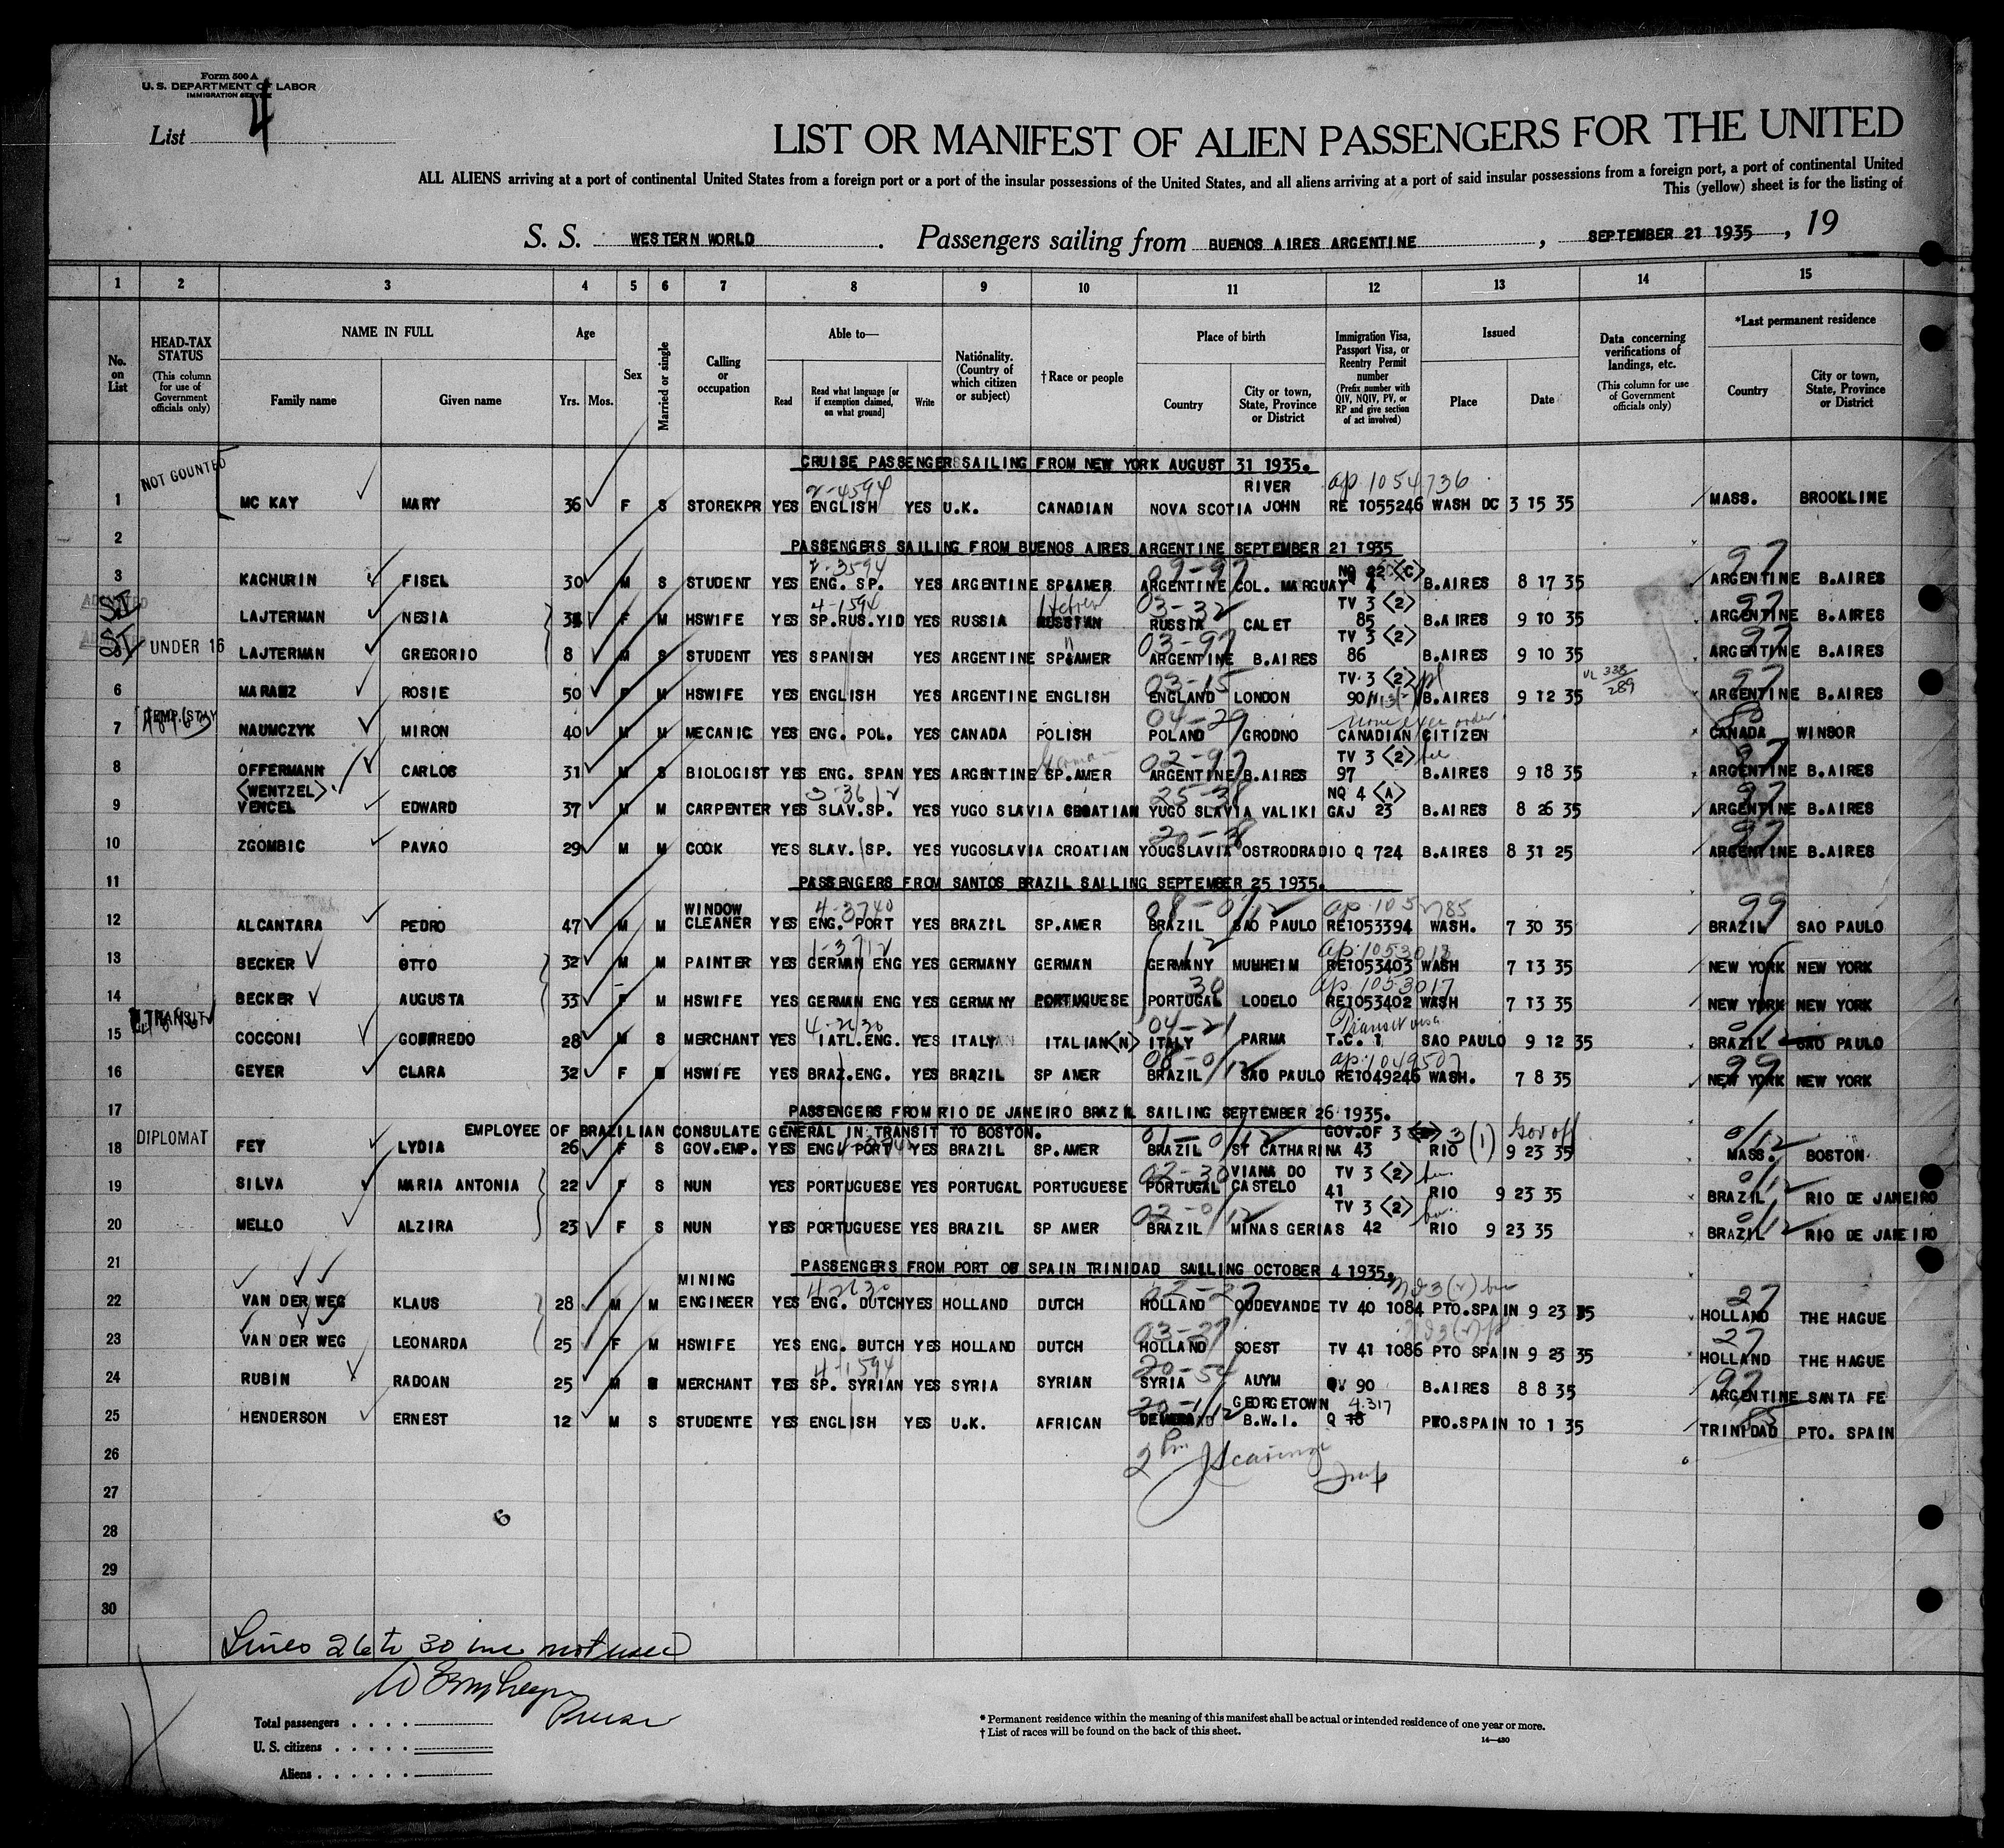 Form 500 A
U. S. DEPARTMENT OF LABOR
IMMIGRATION SERVICE
List 4
LIST OR MANIFEST OF ALIEN PASSENGERS FOR THE UNITED
ALL ALIENS arriving at a port of continental United States from a foreign port or a port of the insular possessions of the United States, and all aliens arriving at a port of said insular possessions from a foreign port, a port of continental United
This (yellow) sheet is for the listing of
S. S. WESTERN WORLD . Passengers sailing from BUENOS AIRES ARGENTINE , SEPTEMBER 21 1935 , 19
1 2 3 4 5 6 7 8 9 10 11 12 13 14 15
No. on List
HEAD-TAX STATUS (This column for use of Government officials only)
NAME IN FULL Family name Given name
Age Yrs. Mos.
Sex
Married or single
Calling or occupation
Able to— Read Read what language [or if exemption claimed, on what ground] Write
Nationality. (Country of which citizen or subject)
†Race or people
Place of birth Country City or town, State, Province or District
Immigration Visa, Passport Visa, or Reentry Permit number (Prefix number with QIV, NQIV, PV, or RP and give section of act involved)
Issued Place Date
Data concerning verifications of landings, etc. (This column for use of Government officials only)
*Last permanent residence Country City or town, State, Province or District
CRUISE PASSENGER SAILING FROM NEW YORK AUGUST 31 1935.
NOT COUNTED 2-4594 RIVER ap. 1054736
1 MC KAY MARY 36 F S STOREKPR YES ENGLISH YES U.K. CANADIAN NOVA SCOTIA JOHN RE 1055246 WASH DC 3 15 35 MASS. BROOKLINE
2 PASSENGERS SAILING FROM BUENOS AIRES ARGENTINE SEPTEMBER 21 1935
2-3594 09-97 NQ 22 <C> 97
3 KACHURIN FISEL 30 M S STUDENT YES ENG. SP. YES ARGENTINE SP&AMER ARGENTINE COL. MARGUAY 4 B.AIRES 8 17 35 ARGENTINE B.AIRES
SI 4-1594 Hebrew 03-32 TV 3 <2> 97
LAJTERMAN NESIA F M HSWIFE YES SP.RUS.YID YES RUSSIA RUSSIAN RUSSIA CALET 85 B.AIRES 9 10 35 ARGENTINE B.AIRES
SI 03-97 TV 3 <2> 97
UNDER 16 LAJTERMAN GREGORIO 8 M S STUDENT YES SPANISH YES ARGENTINE SP&AMER ARGENTINE B.AIRES 86 B.AIRES 9 10 35 ARGENTINE B.AIRES
03-15 TV 3 <2> pl VL 338/289 97
6 MARANZ ROSIE 50 F M HSWIFE YES ENGLISH YES ARGENTINE ENGLISH ENGLAND LONDON 90 B.AIRES 9 12 35 ARGENTINE B.AIRES
TEMP. STAY 04-29 none exec order
7 NAUMCZYK MIRON 40 M M MECANIC YES ENG. POL. YES CANADA POLISH POLAND GRODNO CANADIAN CITIZEN CANADA WINSOR
German 02-97 TV 3 <2> 97
8 OFFERMANN CARLOS 31 M S BIOLOGIST YES ENG. SPAN YES ARGENTINE SP.AMER ARGENTINE B.AIRES 97 B.AIRES 9 18 35 ARGENTINE B.AIRES
<WENTZEL> 25-38 NQ 4 <A> 97
9 VENCEL EDWARD 37 M M CARPENTER YES SLAV.SP. YES YUGO SLAVIA CROATIAN YUGO SLAVIA VALIKI GAJ 23 B.AIRES 8 26 35 ARGENTINE B.AIRES
20-38 97
10 ZGOMBIC PAVAO 29 M M COOK YES SLAV. SP. YES YUGOSLAVIA CROATIAN YOUGSLAVIA OSTRODRADIO Q 724 B.AIRES 8 31 25 ARGENTINE B.AIRES
11 PASSENGERS FROM SANTOS BRAZIL SAILING SEPTEMBER 25 1935.
WINDOW 4-3740 08-0/12 ap. 1052785 99
12 ALCANTARA PEDRO 47 M M CLEANER YES ENG. PORT YES BRAZIL SP.AMER BRAZIL SAO PAULO RE1053394 WASH. 7 30 35 BRAZIL SAO PAULO
1-3712 12 ap. 1053018
13 BECKER OTTO 32 M M PAINTER YES GERMAN ENG YES GERMANY GERMAN GERMANY MUMHEIM RE1053403 WASH 7 13 35 NEW YORK NEW YORK
30 ap. 1053017
14 BECKER AUGUSTA 33 F M HSWIFE YES GERMAN ENG YES GERMANY PORTUGUESE PORTUGAL LODELO RE1053402 WASH 7 13 35 NEW YORK NEW YORK
TRANSIT 4-2630 04-21 Transit visa 0/12
15 COCCONI GOFFREDO 28 M S MERCHANT YES IATL.ENG. YES ITALY ITALIAN<N> ITALY PARMA T.C. 1 SAO PAULO 9 12 35 BRAZIL SAO PAULO
08-0/12 ap. 1049507 99
16 GEYER CLARA 32 F HSWIFE YES BRAZ.ENG. YES BRAZIL SP AMER BRAZIL SAO PAULO RE1049246 WASH. 7 8 35 NEW YORK NEW YORK
17 PASSENGERS FROM RIO DE JANEIRO BRAZIL SAILING SEPTEMBER 26 1935.
EMPLOYEE OF BRAZILIAN CONSULATE GENERAL IN TRANSIT TO BOSTON. 01-0/12 GOV.OF 3 3 (1) Gov off 0/12
18 DIPLOMAT FEY LYDIA 26 F S GOV.EMP. YES ENG. PORT YES BRAZIL SP.AMER BRAZIL ST CATHARINA 43 RIO 9 23 35 MASS. BOSTON
02-30 VIANA DO TV 3 <2> 0/12
19 SILVA MARIA ANTONIA 22 F S NUN YES PORTUGUESE YES PORTUGAL PORTUGUESE PORTUGAL CASTELO 41 RIO 9 23 35 BRAZIL RIO DE JANEIRO
02-0/12 TV 3 <2> 0/12
20 MELLO ALZIRA 23 F S NUN YES PORTUGUESE YES BRAZIL SP AMER BRAZIL MINAS GERIAS 42 RIO 9 23 35 BRAZIL RIO DE JANEIRO
21 PASSENGERS FROM PORT OF SPAIN TRINIDAD SAILING OCTOBER 4 1935.
MINING 4 2630 22-27 27
22 VAN DER WEG KLAUS 28 M M ENGINEER YES ENG. DUTCH YES HOLLAND DUTCH HOLLAND OUDEVANDE TV 40 1084 PTO.SPAIN 9 23 35 HOLLAND THE HAGUE
03-27 27
23 VAN DER WEG LEONARDA 25 F M HSWIFE YES ENG. DUTCH YES HOLLAND DUTCH HOLLAND SOEST TV 41 1086 PTO SPAIN 9 23 35 HOLLAND THE HAGUE
4-1594 20-54 97
24 RUBIN RADOAN 25 M MERCHANT YES SP. SYRIAN YES SYRIA SYRIAN SYRIA AUYM QV 90 B.AIRES 8 8 35 ARGENTINE SANTA FE
20-1/12 GEORGETOWN 4317 85
25 HENDERSON ERNEST 12 M S STUDENTE YES ENGLISH YES U.K. AFRICAN B.W.I. Q 18 PTO.SPAIN 10 1 35 TRINIDAD PTO. SPAIN
26
27
28 6
29
30
Lines 26 to 30 inc not used
Purser
Total passengers . . . .
U. S. citizens . . . . .
Aliens . . . . . .
* Permanent residence within the meaning of this manifest shall be actual or intended residence of one year or more.
† List of races will be found on the back of this sheet.
14—430